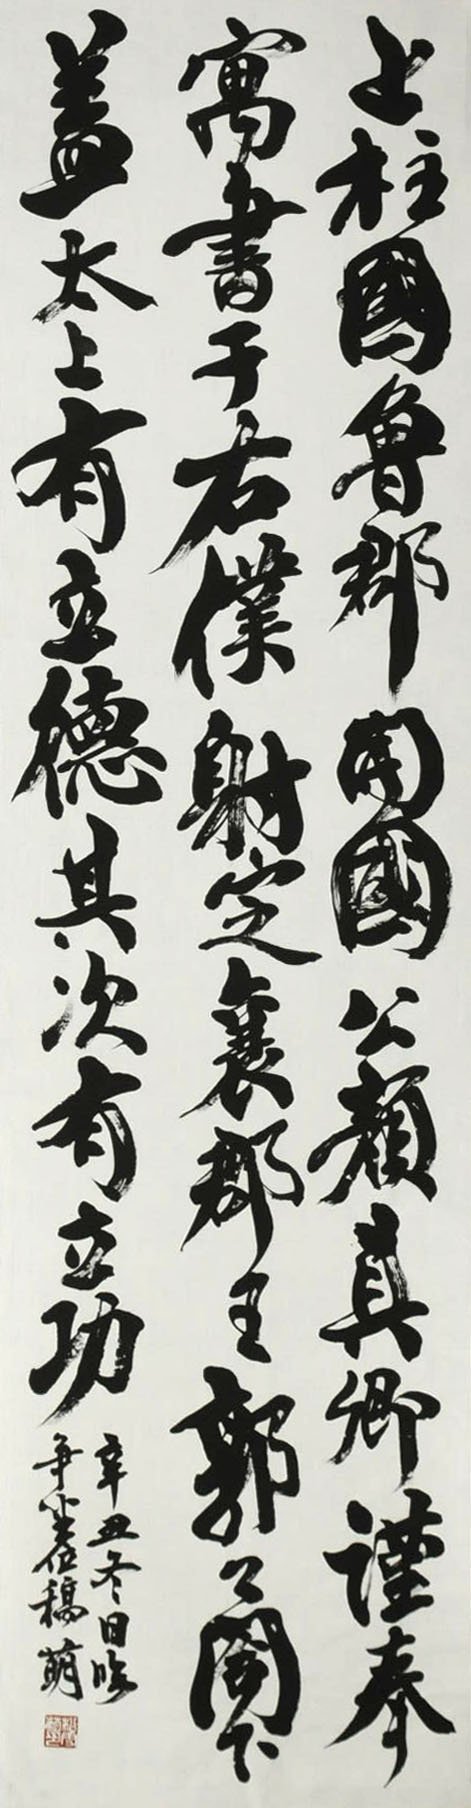 上柱國魯郡開國公顏真卿謹奉
寓書于右僕射定襄郡王郭公閣下
蓋太上有立德其次有立功
辛丑冬日臨
爭坐位稿 萌